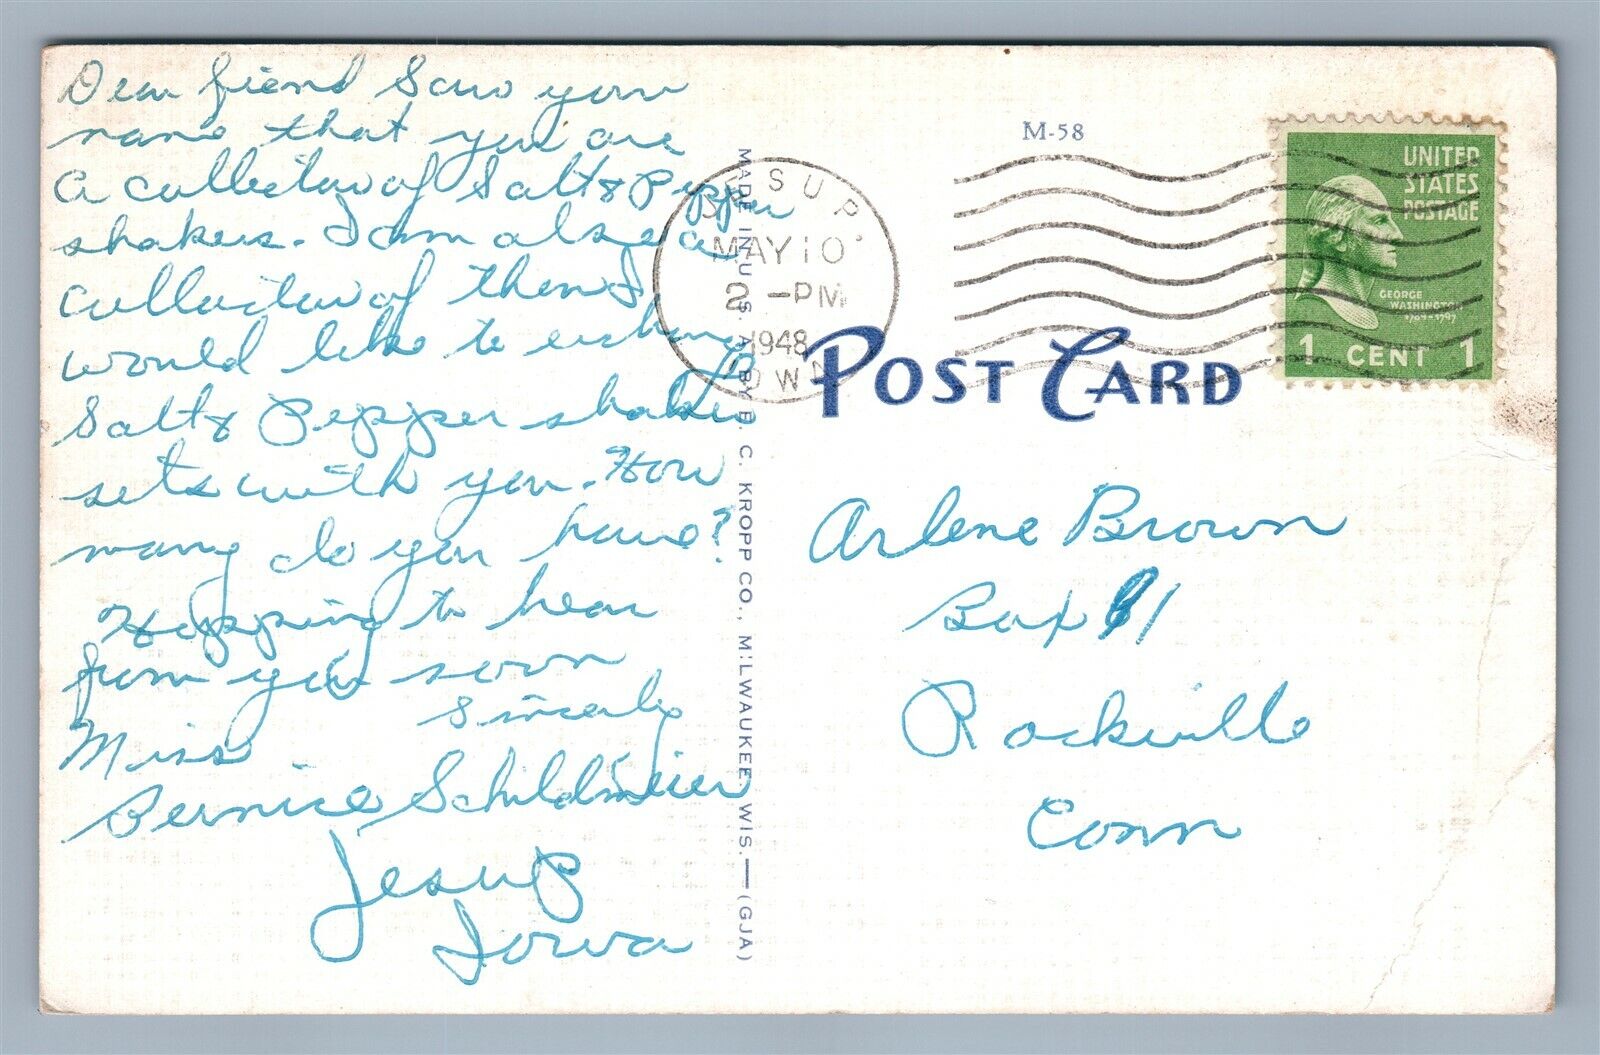 Dear friend Saw your
name that you are
a collector of Salt & Pepper
shakers. I am also a
collector of them I
would like to exchang
Salt & Pepper shaker
sets with you. How
many do you have?
Hopping to hear
from you soon
Sincerly
Miss
Bernice Schildmeier
Jesup
Iowa
MADE IN U.S.A. BY E. C. KROPP CO., MILWAUKEE, WIS.—(GJA)
M-58
JESUP
MAY 10
2 -PM
1948
IOWA
UNITED
STATES
POSTAGE
GEORGE
WASHINGTON
1789-1797
1 CENT 1
POST CARD
Arlene Brown
Box 91
Rockville
Conn